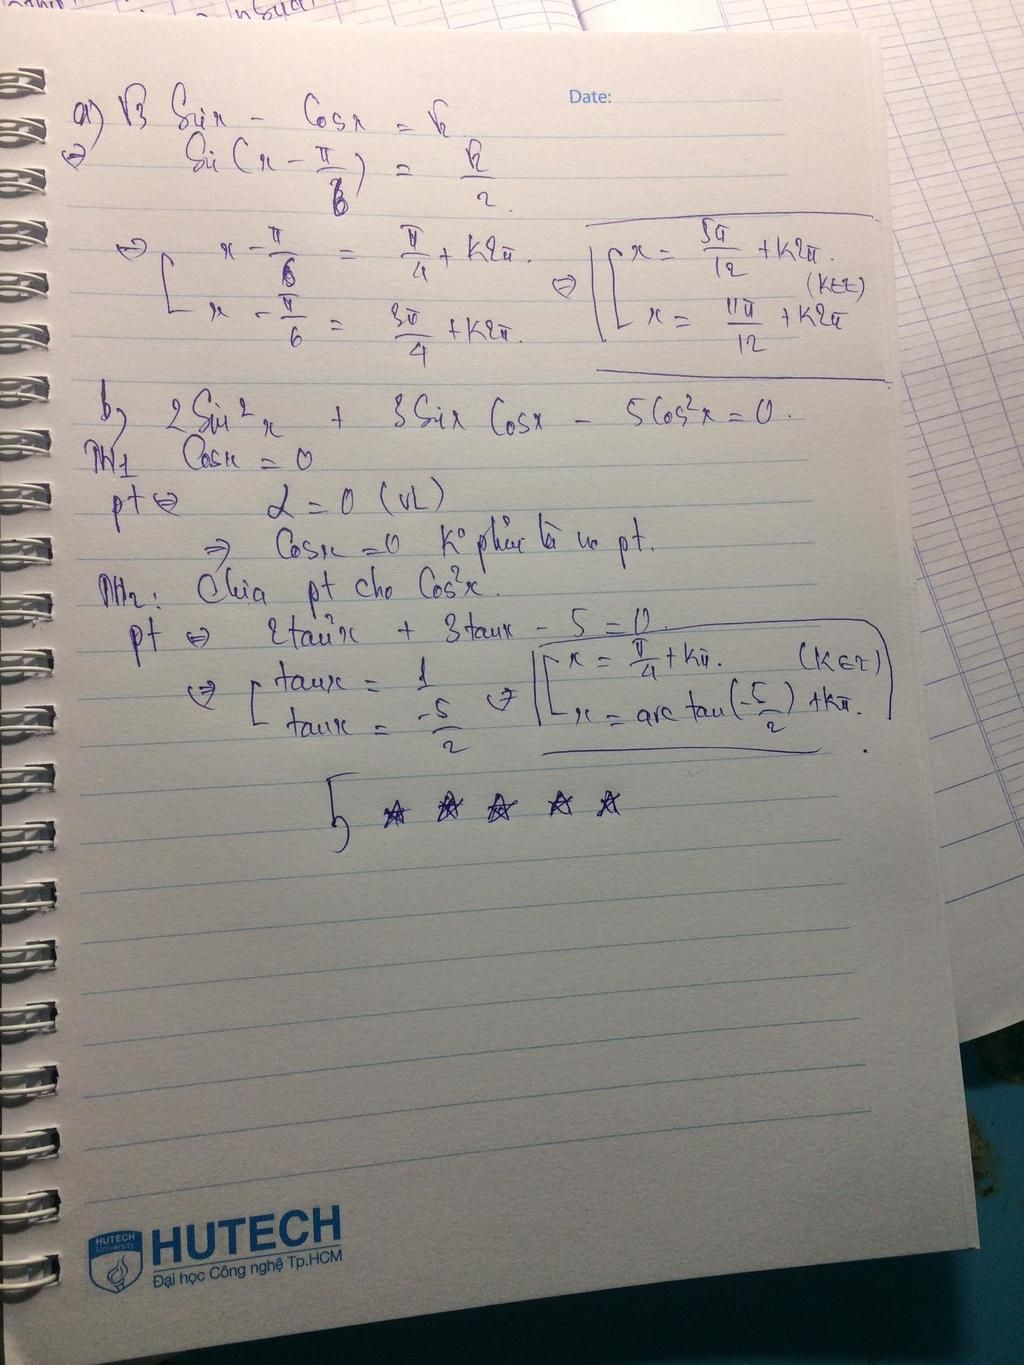 Date:
a) √3 Sinx - Cosx = √2
⇔ Sin(x - π/6) = √2/2
⇔ [ x - π/6 = π/4 + k2π.
x - π/6 = 3π/4 + k2π.
⇔ [ x = 5π/12 + k2π.
(k∈Z)
x = 11π/12 + k2π
b) 2Sin²x + 3Sinx Cosx - 5Cos²x = 0.
TH1 Cosx = 0
pt ⇔ 2 = 0 (VL)
⇒ Cosx = 0 K° phải là no pt.
TH2: Chia pt cho Cos²x.
pt ⇔ 2tan²x + 3tanx - 5 = 0.
⇔ [ tanx = 1
tanx = -5/2
⇔ [ x = π/4 + kπ. (k∈Z)
x = arc tan(-5/2) + kπ.
5 ☆ ☆ ☆ ☆ ☆
HUTECH
University
HUTECH
Đại học Công nghệ Tp.HCM